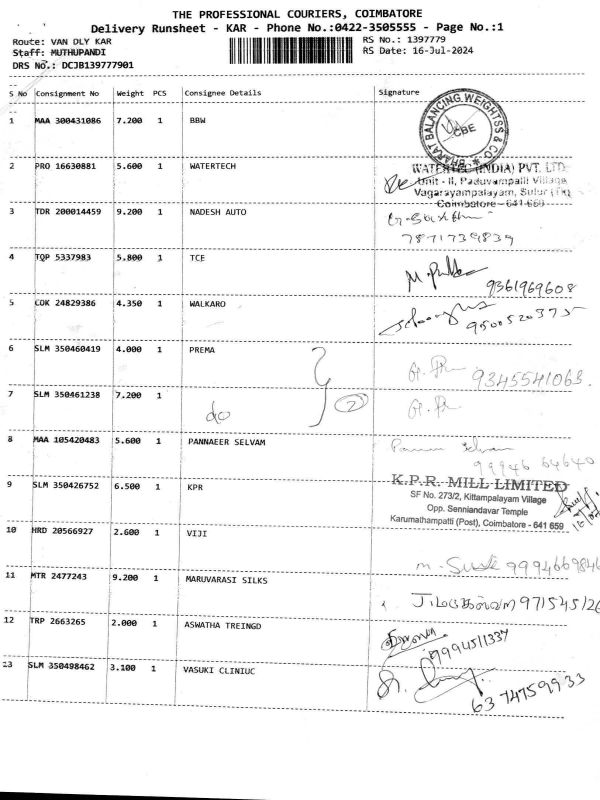 THE PROFESSIONAL COURIERS, COIMBATORE
Delivery Runsheet - KAR - Phone No.:0422-3505555 - Page No.:1
Route: VAN DLY KAR RS No.: 1397779
Staff: MUTHUPANDI RS Date: 16-Jul-2024
DRS No.: DCJB139777901
S No Consignment No Weight PCS Consignee Details Signature
1 MAA 300431086 7.200 1 BBW
BHARAT BALANCING WEIGHTSS & CO. CBE
2 PRO 16630881 5.600 1 WATERTECH
WATERTEC (INDIA) PVT. LTD.
Unit - II, Paduvampalli Village
Vagarayampalayam, Sulur (TK)
Coimbatore - 641 659
3 TDR 200014459 9.200 1 NADESH AUTO
7871739839
4 TQP 5337983 5.800 1 TCE
9361969608
5 CDK 24829386 4.350 1 WALKARO
6 SLM 350460419 4.000 1 PREMA
9345541063.
7 SLM 350461238 7.200 1
do 2
8 MAA 105420483 5.600 1 PANNAEER SELVAM
99946 64640
9 SLM 350426752 6.500 1 KPR
K.P.R. MILL LIMITED
SF No. 273/2, Kittampalayam Village
Opp. Senniandavar Temple
Karumathampatti (Post), Coimbatore - 641 659
10 HRD 20566927 2.600 1 VIJI
9994669846
11 MTR 2477243 9.200 1 MARUVARASI SILKS
12 TRP 2663265 2.000 1 ASWATHA TREINGD
9994511337
13 SLM 350498462 3.100 1 VASUKI CLINIUC
63 74759933